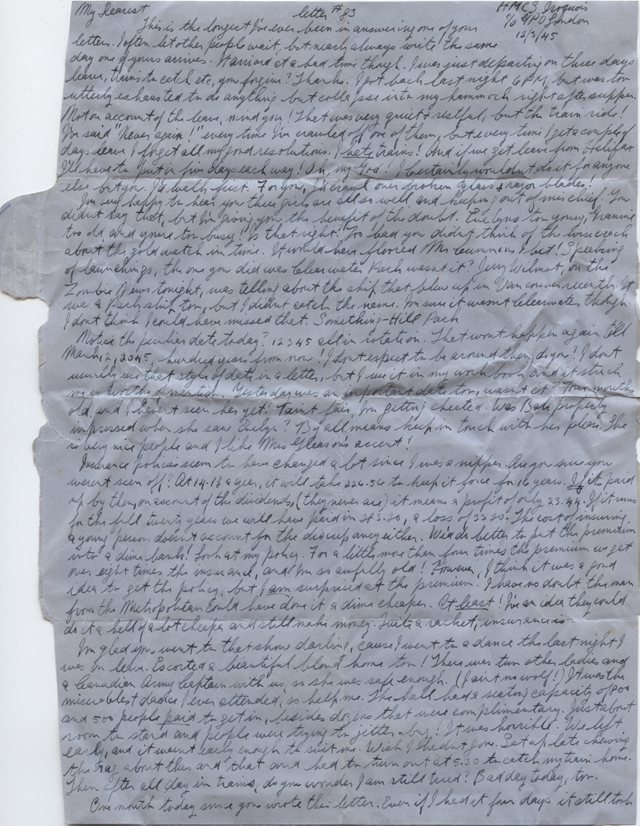 My Dearest letter #83 HMCS Iroquois
c/o GPO London
12/3/45
This is the longest I've ever been in answering one of your
letters. I often let other people wait, but nearly always write the same
day one of yours arrives. It arrived at a bad time though. I was just departing on three days
leave, trains to catch etc, you forgive? Thanks. I got back last night 6 PM, but was too
utterly exhausted to do anything but collapse into my hammock right after supper.
Not on account of the leave, mind you! That was very quiet & restful, but the train ride!
I've said "Never again!" every time I've crawled off one of them, but every time I get a couple of
days leave I forget all my good resolutions. I hate trains! And if we get leave from Halifax
I'll have to put in five days each way! Oh, my You! I certainly wouldn't do it for anyone
else but you. I'd walk first. For you, I'd crawl over broken glass & razor blades!
I'm very happy to hear you three girls are all so well and keeping out of mischief. You
didn't say that, but I'm giving you the benefit of the doubt. Evelyns too young, Granny
too old and you're too busy. Is that right? Too bad you didn't think of the wise crack
about the gold watch in time. It would have floored Mr Cummins I bet! Speaking
of launchings, the one you did was Clearwater Park wasn't it? Jerry Wilmot, on the
Zombie News tonight, was telling about the ship that blew up in Vancouver recently. It
was a Park ship too, but I didn't catch the name. I'm sure it wasn't Clearwater though.
I don't think I could have missed that. Something-Hill Park
Notice the peculiar date today? 12345 all in rotation. That won't happen again till
March 12, 2045, hundred years from now! I don't expect to be around then, do you? I don't
usually use that style of date in a letter, but I use it in my work book and it struck
me as worth the insertion. Yesterday was an important date too, wasn't it? Four months
old, and I haven't seen her yet! Taint fair, I'm getting cheated. Was Bab properly
impressed when she saw Evelyn? By all means keep in touch with her please. She
is very nice people and I like Mrs Gleason's accent!
Insurance policies seem to have changed a lot since I was a nipper. Are you sure you
weren't seen off? At 14.16 a year, it will take 226.56 to keep it force for 16 years. If it paid
up by then, on account of the dividends, (they never are) it means a profit of only 23.44. If it runs
for the full twenty years we will have paid in 283.20, a loss of 33.20. The cost of insuring
a young person doesn't account for the discrepancy either. We'd do better to put the premium
into a dime bank! Look at my policy. For a little more than four times the premium we get
over eight times the insurance, and I'm so awfully old! However, I think it was a good
idea to get the policy, but I am surprised at the premium. I have no doubt the man
from the Metropolitan could have done it a dime cheaper. At least! I've an idea they could
do it a hell of a lot cheaper and still make money. Quite a racket, insurance is.
I'm glad you went to that show darling, cause I went to a dance the last night I
was on leave. Escorted a beautiful blond home too! There was two other ladies and
a Canadian Army Captain with us, so she was safe enough. (I ain't no wolf!) It was the
miserablest dance I ever attended, so help me. The hall had a seating capacity of 400
and 500 people paid to get in, besides dozens that were complimentary. Just about
room to stand and people were trying to jitter-bug! It was horrible. We left
early, and it wasn't early enough to suit me. Wish I hadn't gone. Sat up late chewing
the rag, about this and that and had to turn out at 5.30 to catch my train home.
Then after all day in trains, do you wonder I am still tired? Bad day today, too.
One month today since you wrote this letter. Even if I had it four days it still took